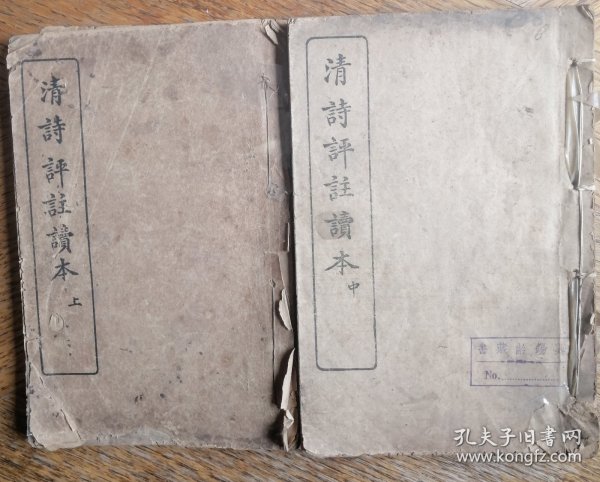 清詩評註讀本 上
清詩評註讀本 中
書藏齡
No.
孔夫子旧书网
www.kongfz.com